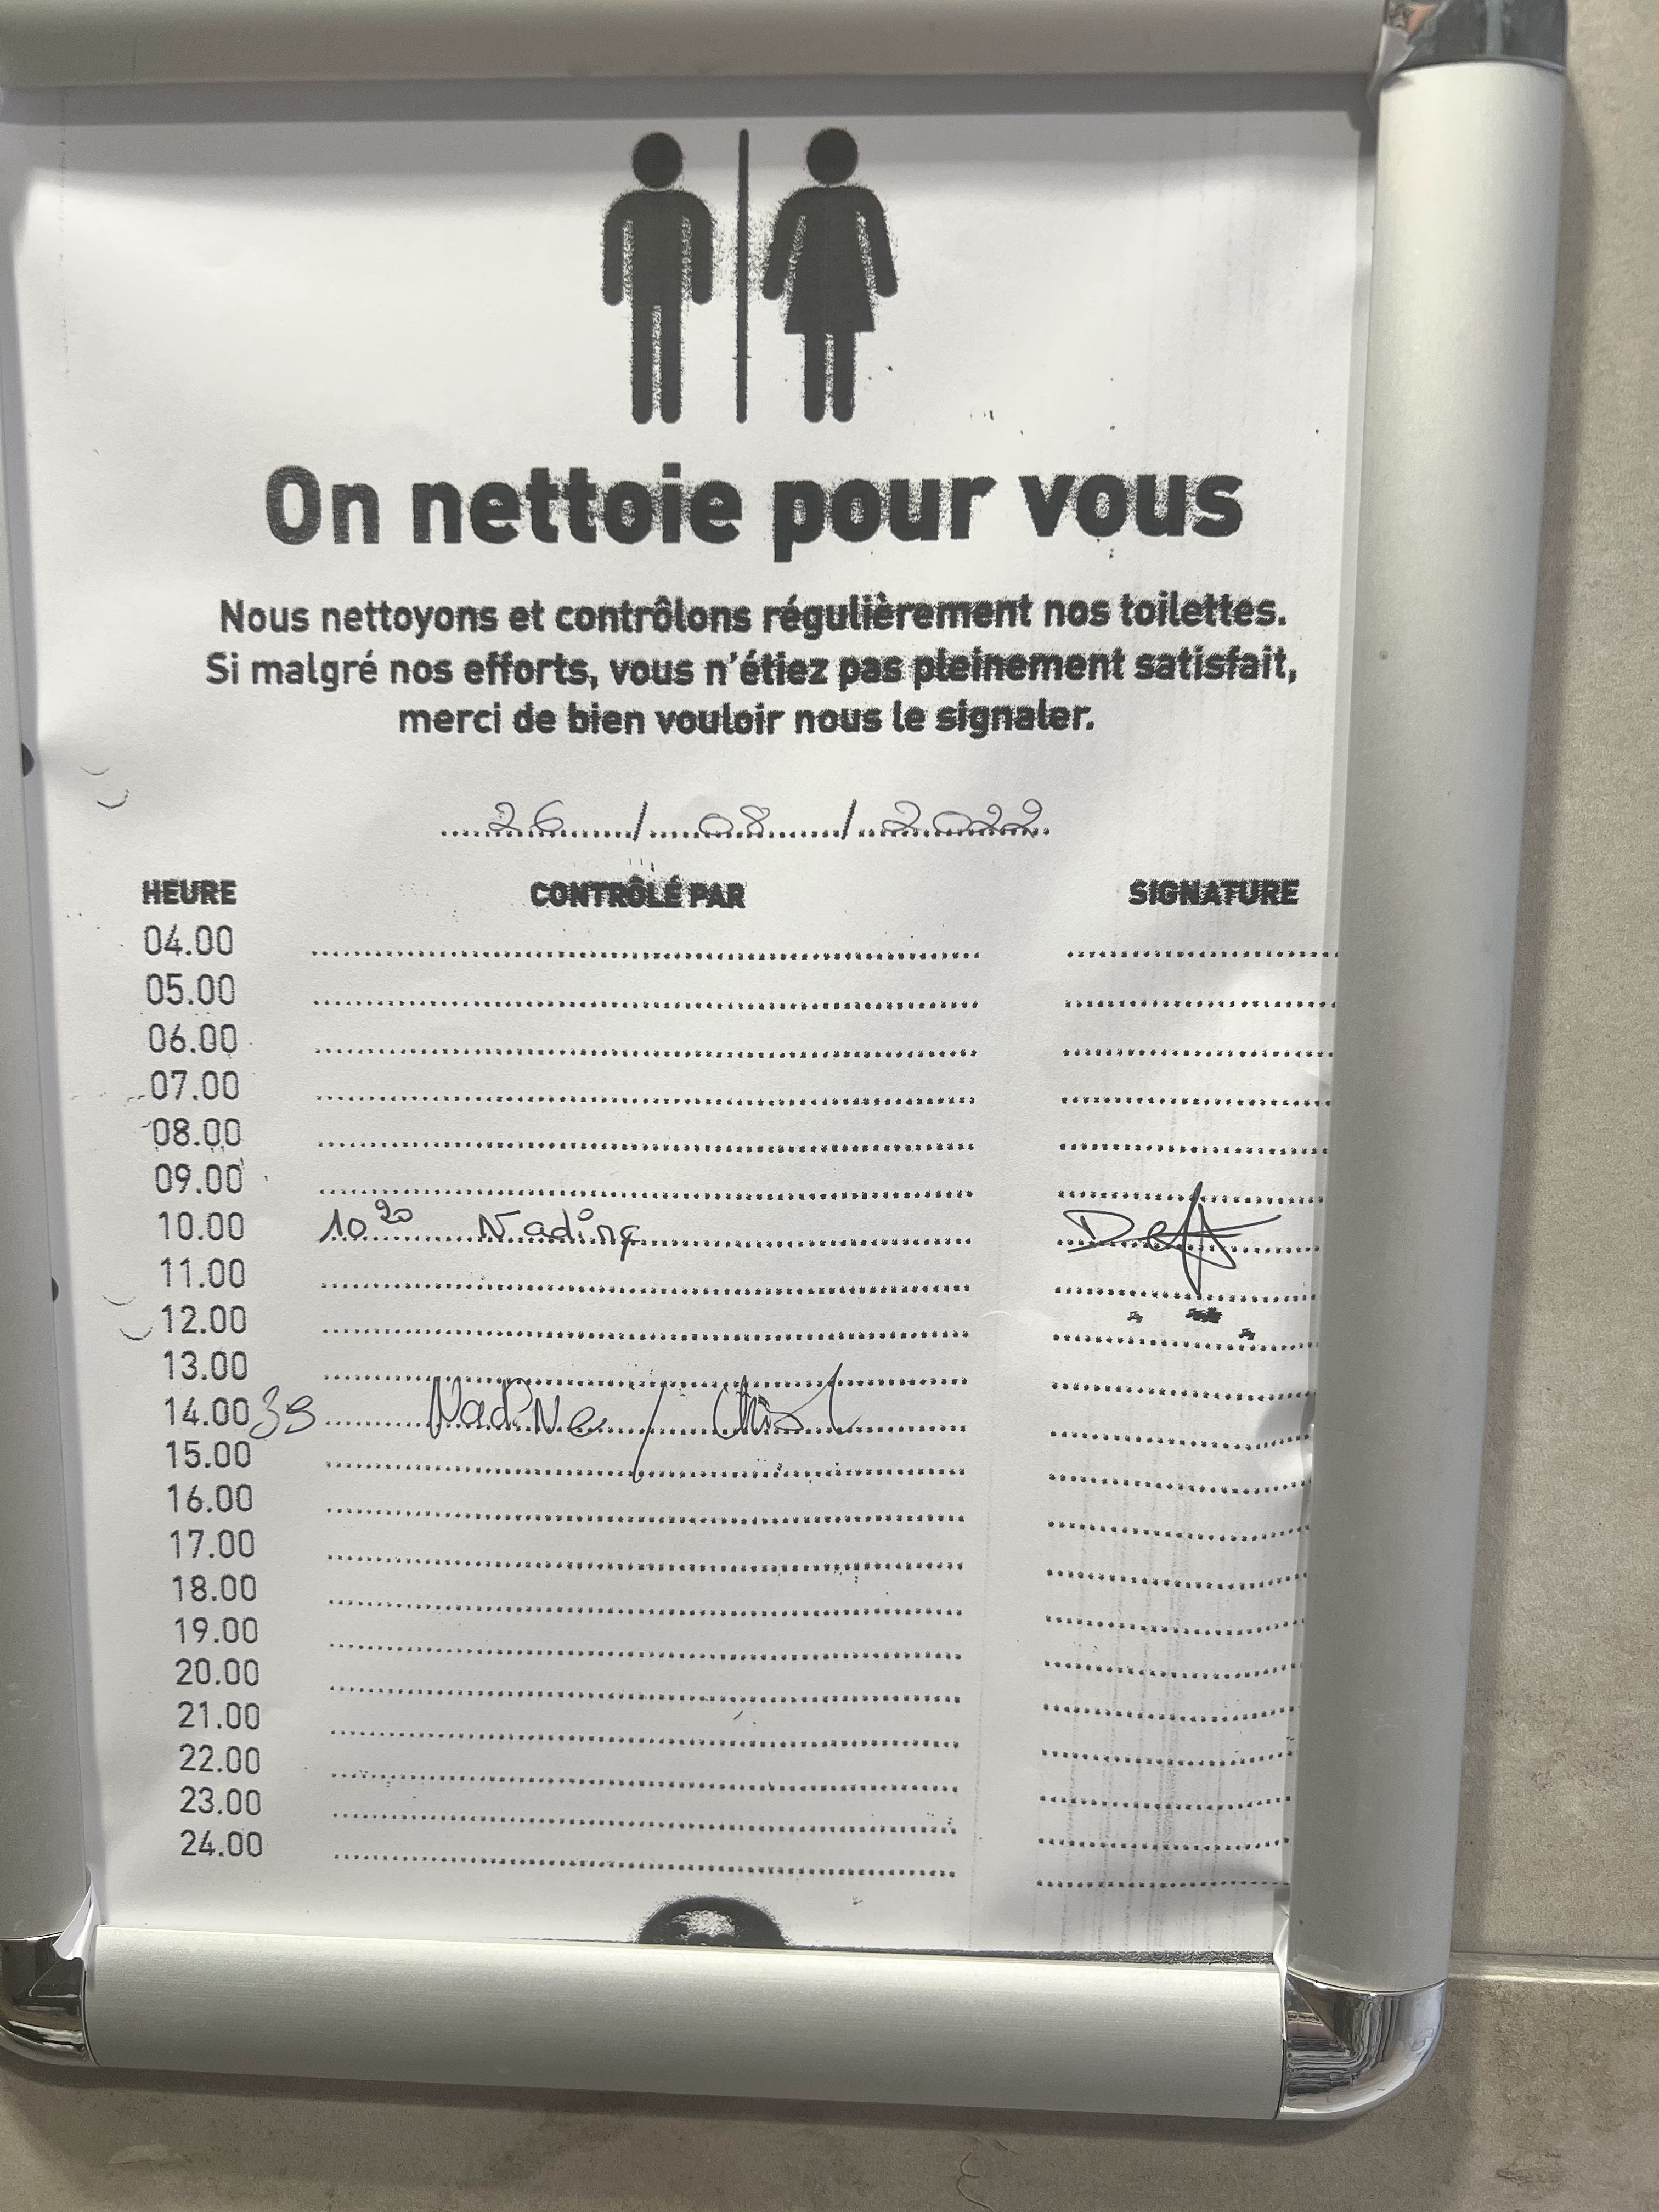 On nettoie pour vous
Nous nettoyons et contrôlons régulièrement nos toilettes.
Si malgré nos efforts, vous n'étiez pas pleinement satisfait,
merci de bien vouloir nous le signaler.
26 / 08 / 2022
HEURE CONTRÔLÉ PAR SIGNATURE
04.00
05.00
06.00
07.00
08.00
09.00
10.00 10 20 Nadine
11.00
12.00
13.00
14.00 Nadine /
15.00
16.00
17.00
18.00
19.00
20.00
21.00
22.00
23.00
24.00